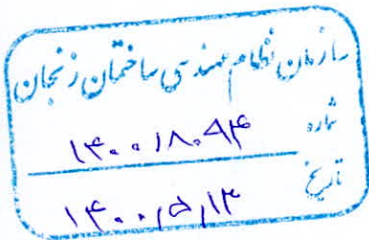 سازمان نظام مهندسی ساختمان زنجان
شماره ۱۴۰۰/۸۰۹۴
تاریخ ۱۴۰۰/۵/۱۳